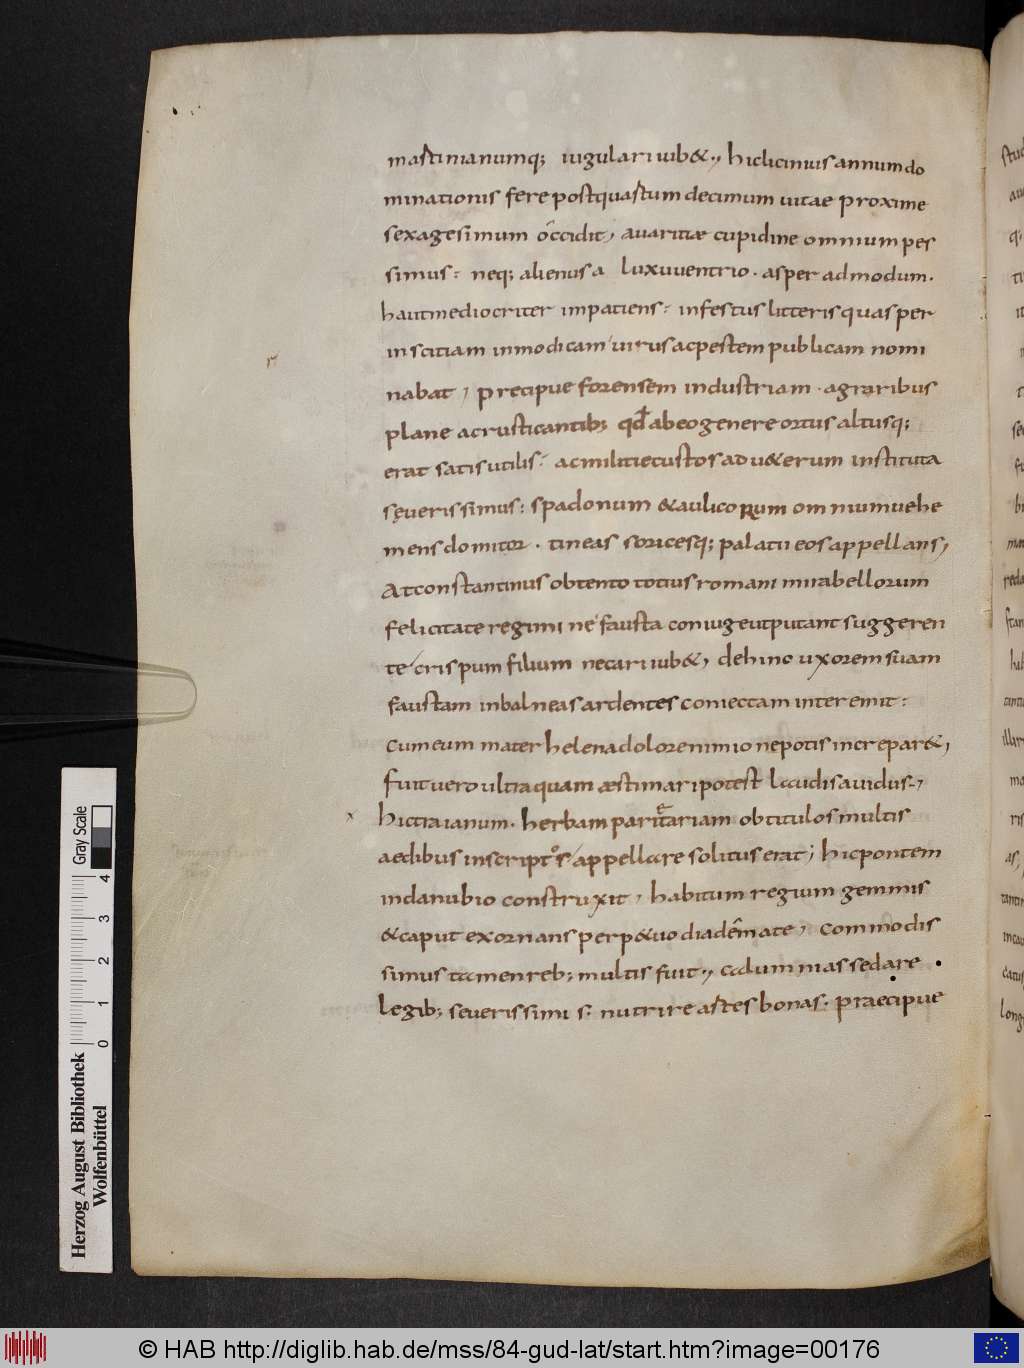 mastinianumq; iugulari iub&., hiclicinius annum do
minationis fere post quastum decimum vitae proxime
sexagesimum occidit, avaritiæ cupidine omnium pes
simus: neq; alienus a luxuventrio. asper admodum.
haut mediocriter impatiens: infestus litteris quas per
inscitiam inmodicam virus ac pestem publicam nomi
nabat, precipue forensem industriam. agraribus
plane ac rusticantib; qđ ab eo genere ortus altusq;
erat satis utilis: ac militie custos ad u&erum instituta
sęverissimus: spadonum & aulicorum omnium uehe
mens domitor. tineas soricesq; palatii eos appellans,
At constantinus obtento totius romani mirabellorum
felicitate regimi ne fausta coniuge ut putant suggeren
te crispum filium necari iub&, dehinc uxorem suam
faustam in balneas ardentes coniectam interemit:
cum eum mater helena dolore nimio nepotis increpar&,
fuit vero ultra quam æstimari potest laudis avidus.,
x hic traianum. herbam paritariam ob titulos multis
aedibus inscriptos appellare solitus erat; hic pontem
in danubio construxit, habitum regium gemmis
& caput exornans perp&uo diadêmate, commodis
simus tamen reb; multis fuit., calumnias sedare
legib; severissimis: nutrire astes bonas. praecipue
Gray Scale
4
3
2
1
0
Herzog August Bibliothek
Wolfenbüttel
© HAB http://diglib.hab.de/mss/84-gud-lat/start.htm?image=00176